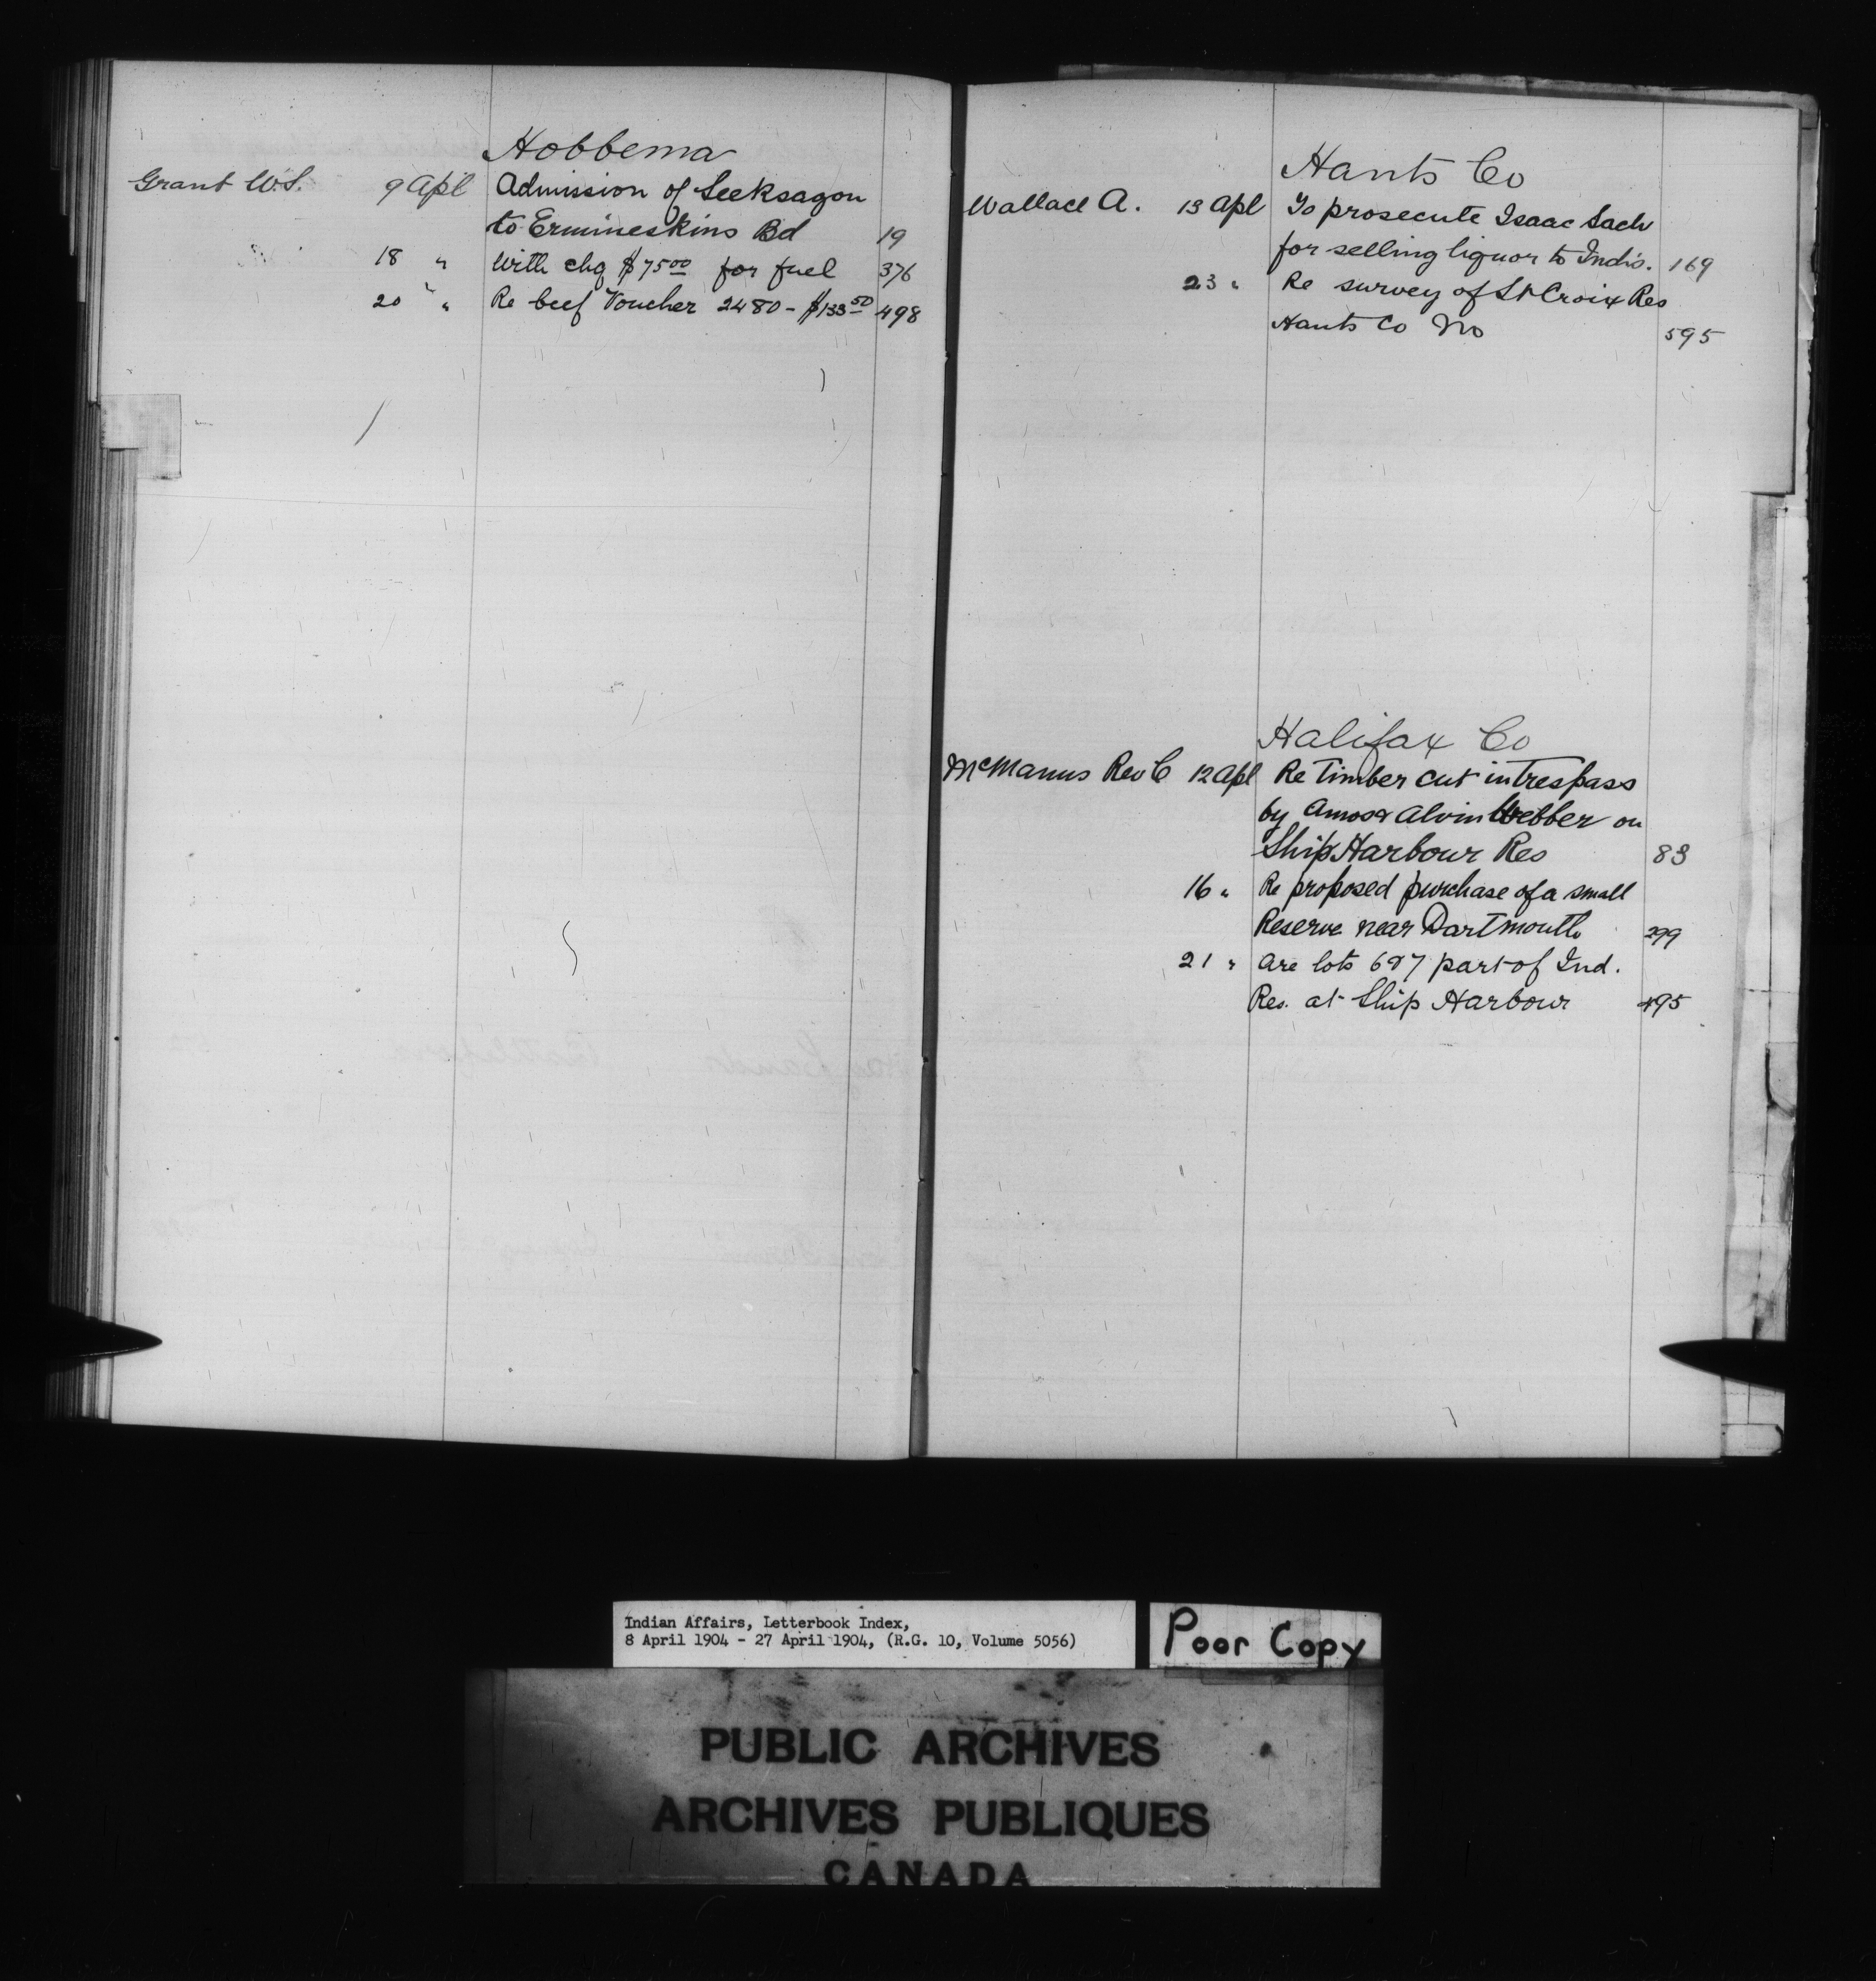 Hobbema
Grant W.S. 9 Apl Admission of Seeksagon
to Ermineskins Bd 19
18 " With chq $75.00 for fuel 376
20 " Re beef Voucher 2480 - $133.50 498
Hants Co
Wallace A. 13 Apl To prosecute Isaac Sack
for selling liquor to Inds. 169
23 " Re survey of St Croix Res
Hants Co No 595
Halifax Co
McManus Rev C 12 Apl Re Timber cut in trespass
by Amos & Alvin Webber on
Ship Harbour Res 83
16 " Re proposed purchase of a small
Reserve near Dartmouth 299
21 " Are lots 6 & 7 part of Ind.
Res. at Ship Harbour 495
Indian Affairs, Letterbook Index,
8 April 1904 - 27 April 1904, (R.G. 10, Volume 5056)
Poor Copy
PUBLIC ARCHIVES
ARCHIVES PUBLIQUES
CANADA